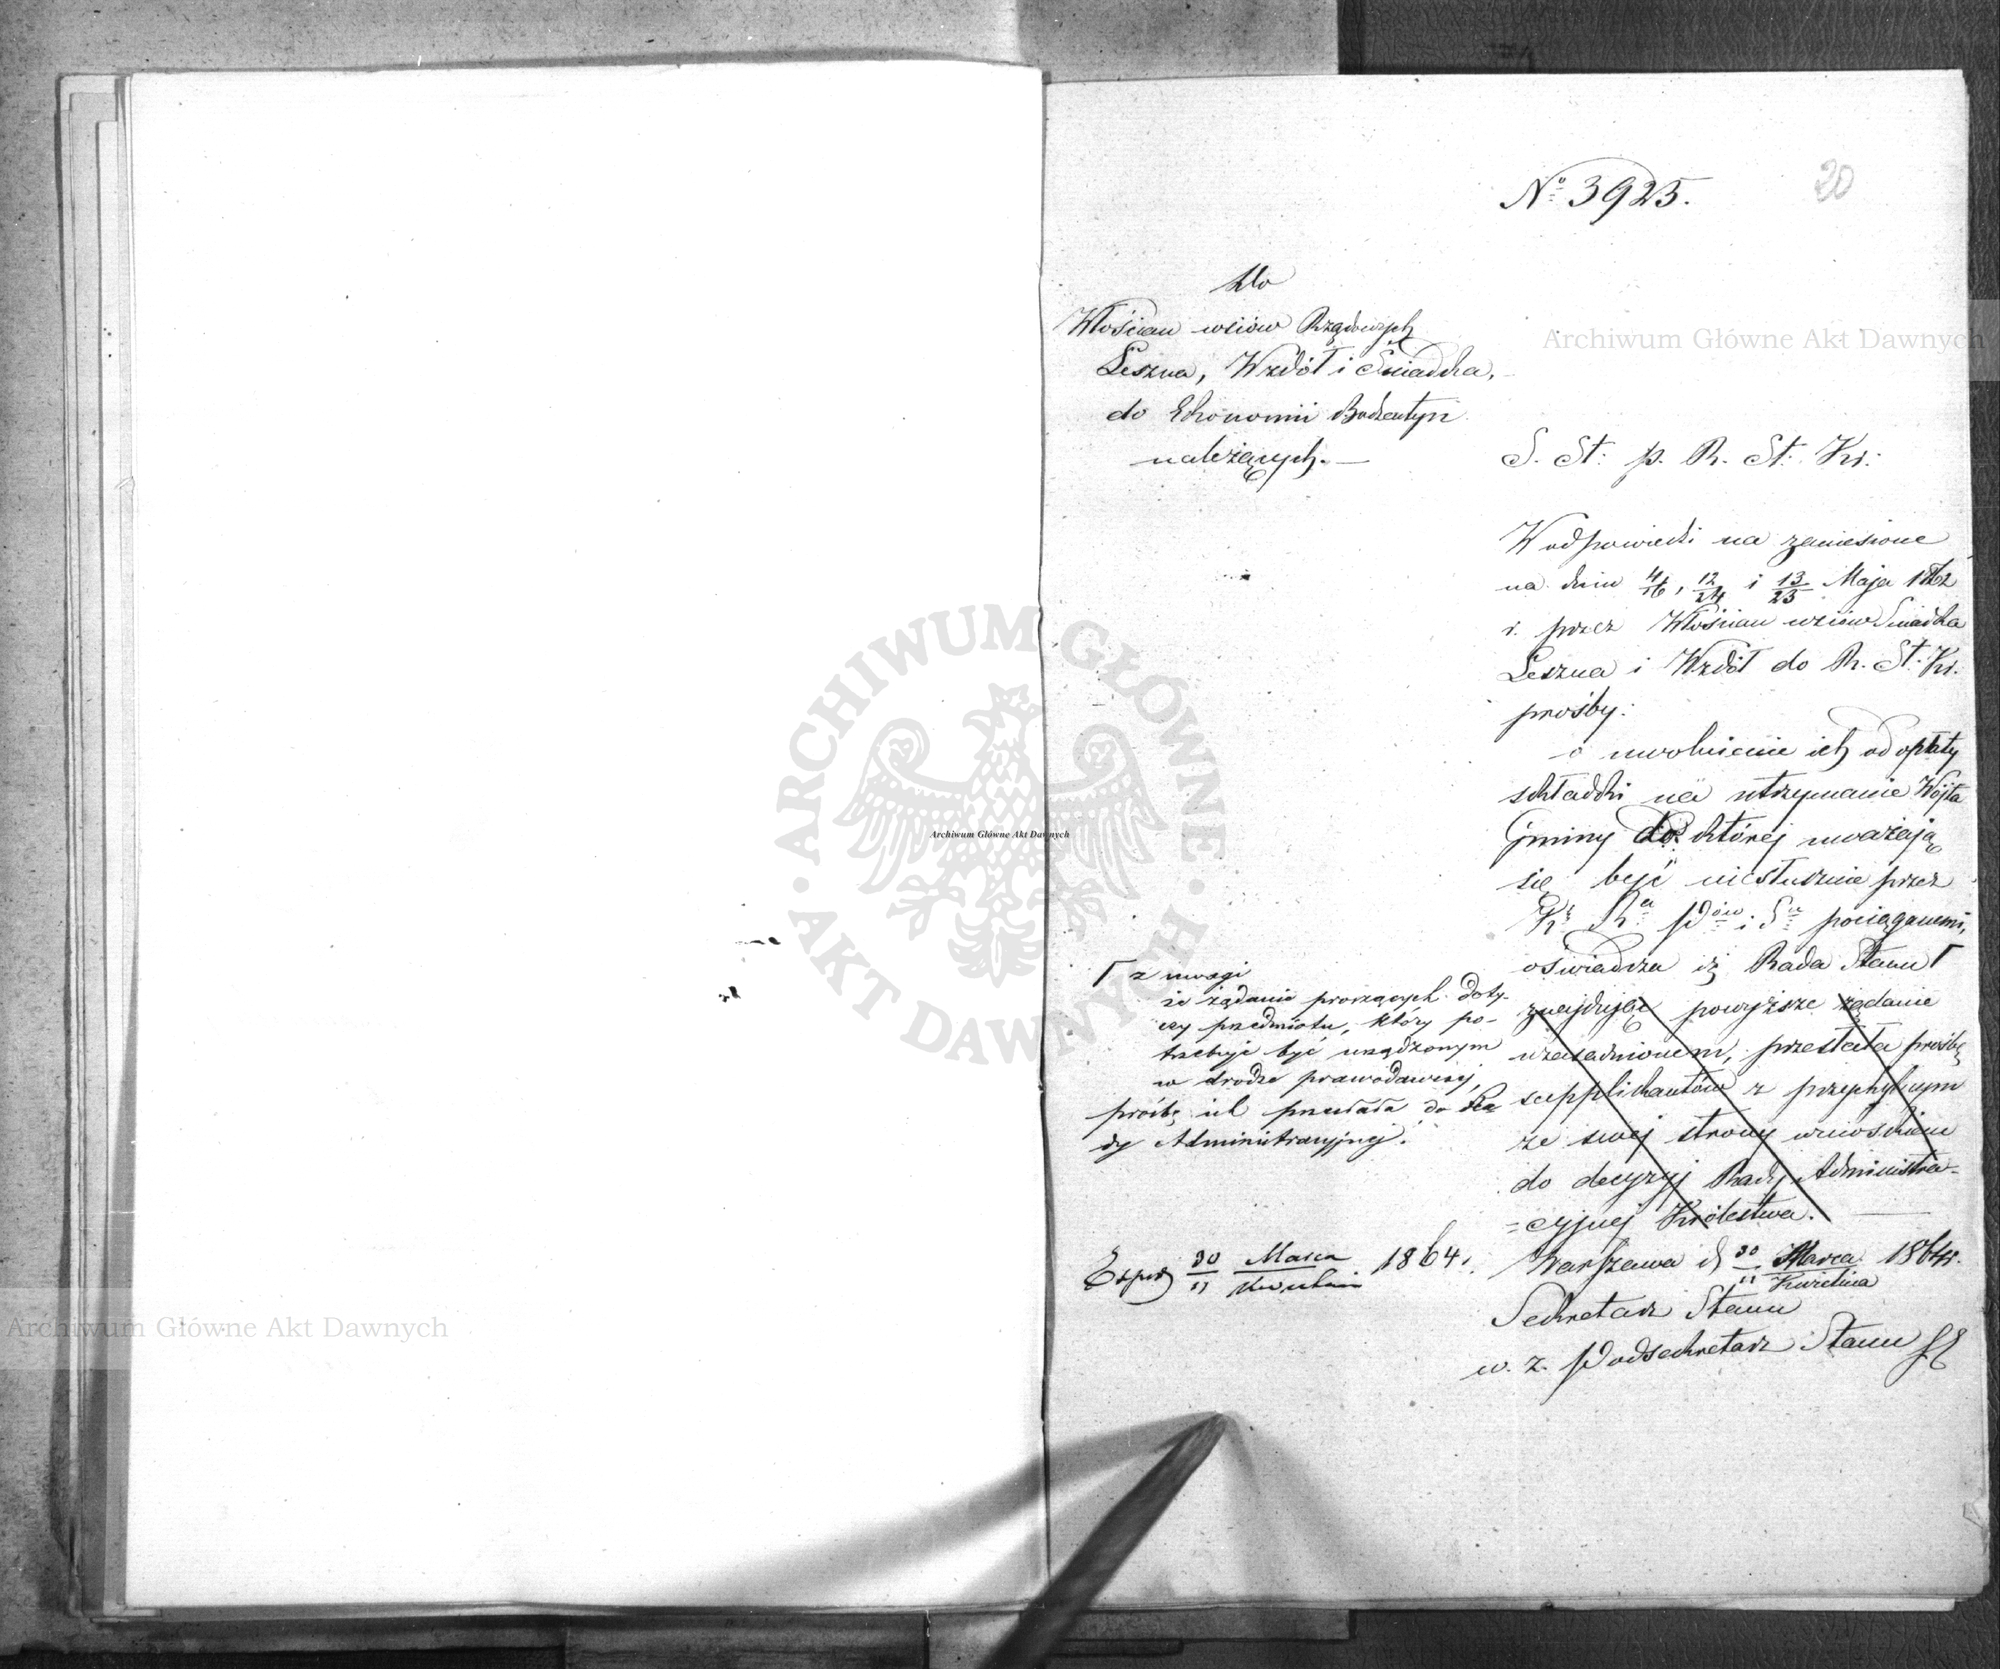 20
No 3925.
Do
Włościan wsiów Rządowych
Leszna, Wzdół i Śniadka,
do Ekonomii Bodzentyn
należących. —
S. St: p. R. St: Kr:
W odpowiedzi na zaniesione
na dniu 4/16, 12/24 i 13/25 Maja 1862
r. przez Włościan wsiów Śniadka
Leszna i Wzdół do R. St: Kr:
prośby:
o uwolnienie ich od opłaty
składki na utrzymanie Wójta
Gminy do której uważają
się być niesłusznie przez
pociąganemi,
oświadcza iż Rada Stanu Γ
znajdując powyższe żądanie
uzasadnionem, przesłała prośbę
supplikantów z przychylnym
ze swej strony wnioskiem
do decyzyj Rady Administra-
=cyjnej Królestwa. —
Γ z uwagi
że żądanie proszących doty-
czy przedmiotu, który po-
trzebuje być urządzonym
w drodze prawodawczej,
prośbę ich przesłała do Ra
dy Administracyjnej.
Warszawa d 30/11 Marca/Kwietnia 1864 r.
Sekretarz Stanu
w. z. Podsekretarz Stanu
Exped 30/11 Marca/Kwietnia 1864.
Archiwum Główne Akt Dawnych
Archiwum Główne Akt Dawnych
Archiwum Główne Akt Dawnych
ARCHIWUM GŁÓWNE · AKT DAWNYCH ·